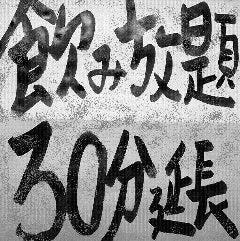 飲み放題
30分延長